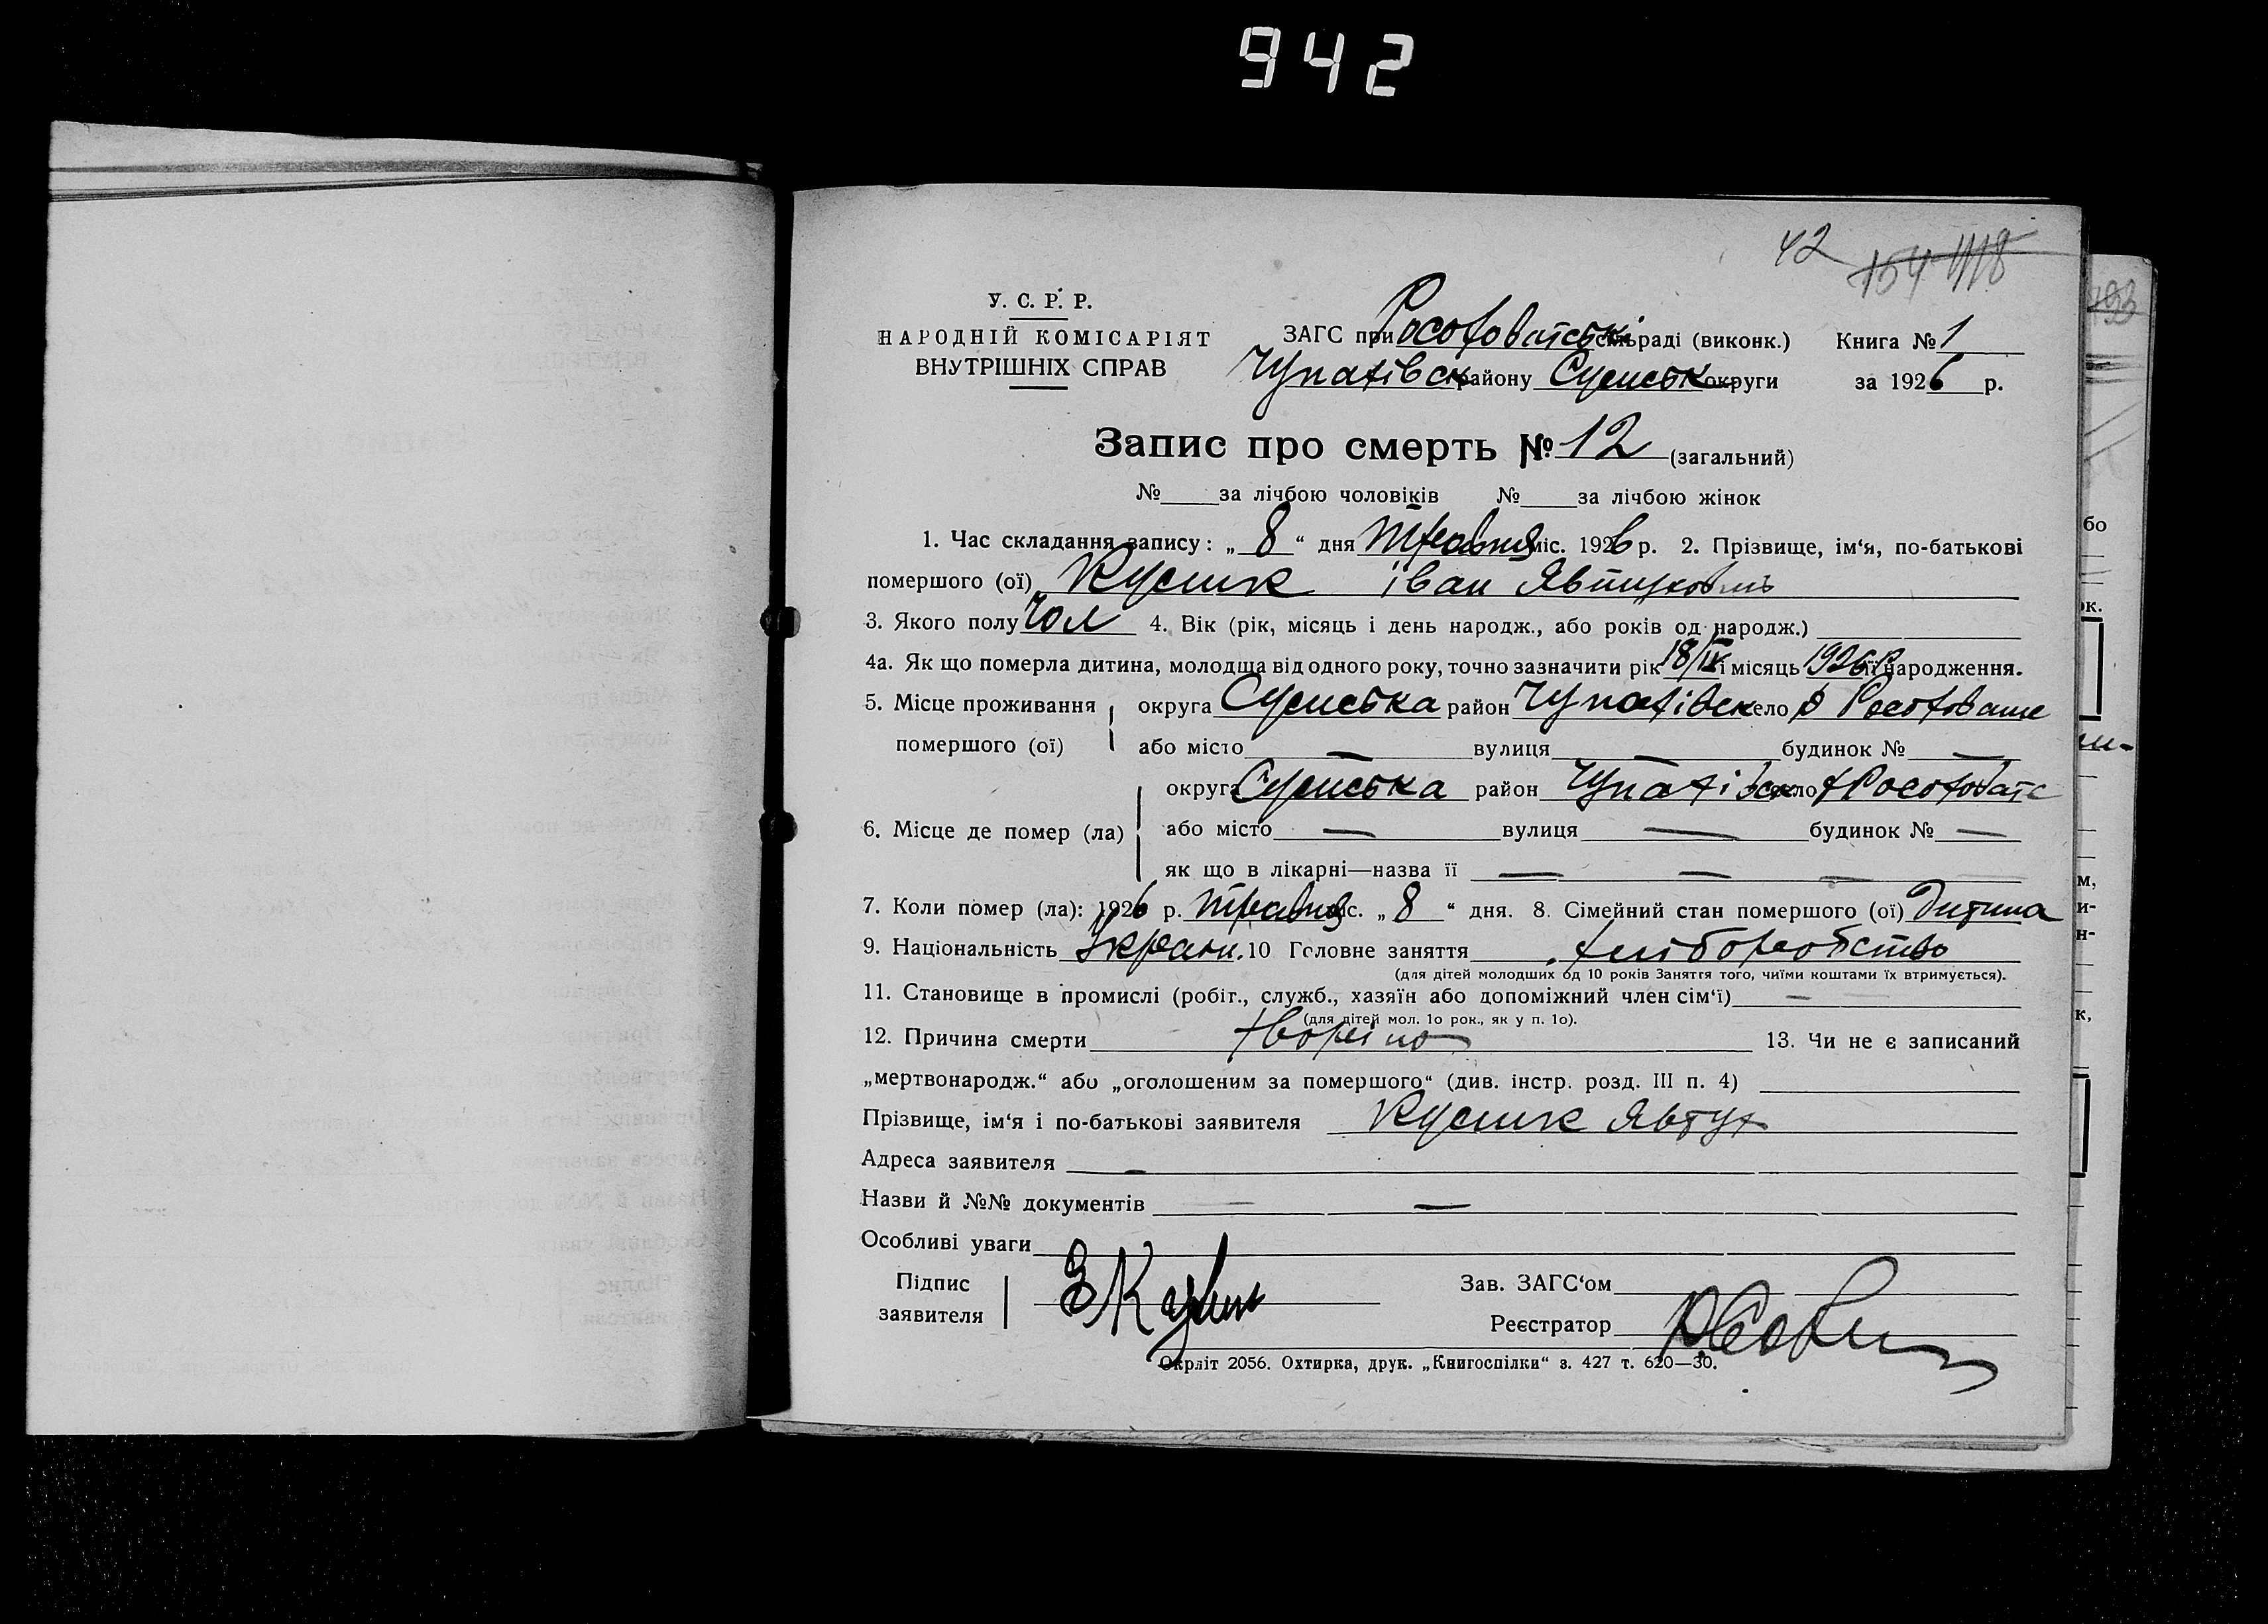 942
42 154 1118
У. С. Р. Р.
НАРОДНІЙ КОМІСАРІЯТ
ВНУТРІШНІХ СПРАВ
ЗАГС при сільраді (виконк.) Книга № 1
району Сумськ округи за 1926 р.
Запис про смерть № 12 (загальний)
№ за лічбою чоловіків № за лічбою жінок
1. Час складання запису: „ 8 “ дня травня міс. 1926 р. 2. Прізвище, ім‘я, по-батькові
помершого (ої) Кусик Іван Явтухович
3. Якого полу Чол 4. Вік (рік, місяць і день народж., або років од народж.)
4а. Як що померла дитина, молодща від одного року, точно зазначити рік 18/IV і місяць 1926 р її народження.
5. Місце проживання помершого (ої) округа Сумська район село
або місто — вулиця — будинок № —
6. Місце де помер (ла) округа Сумська район село
або місто — вулиця — будинок № —
як що в лікарні—назва її — — — —
7. Коли помер (ла): 1926 р. травня міс. „ 8 “ дня. 8. Сімейний стан помершого (ої) Дитина
9. Національність Україн. 10 Головне заняття хліборобство
(для дітей молодших од 10 років Заняття того, чиїми коштами їх втримується).
11. Становище в промислі (робіг., служб., хазяїн або допоміжний член сім‘ї) —
(для дітей мол. 1о рок., як у п. 1о).
12. Причина смерти 13. Чи не є записаний
„мертвонародж.“ або „оголошеним за помершого“ (див. інстр. розд. III п. 4)
Прізвище, ім‘я і по-батькові заявителя Кусик Явтух
Адреса заявителя —
Назви й №№ документів — —
Особливі уваги
Підпис заявителя Зав. ЗАГС‘ом
Реєстратор
Окрліт 2056. Охтирка, друк. „Книгоспілки“ з. 427 т. 620—30.